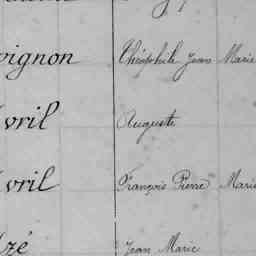 vignon Théophile Jean Marie
vril Auguste
vril François Pierre Marie
zé Jean Marie